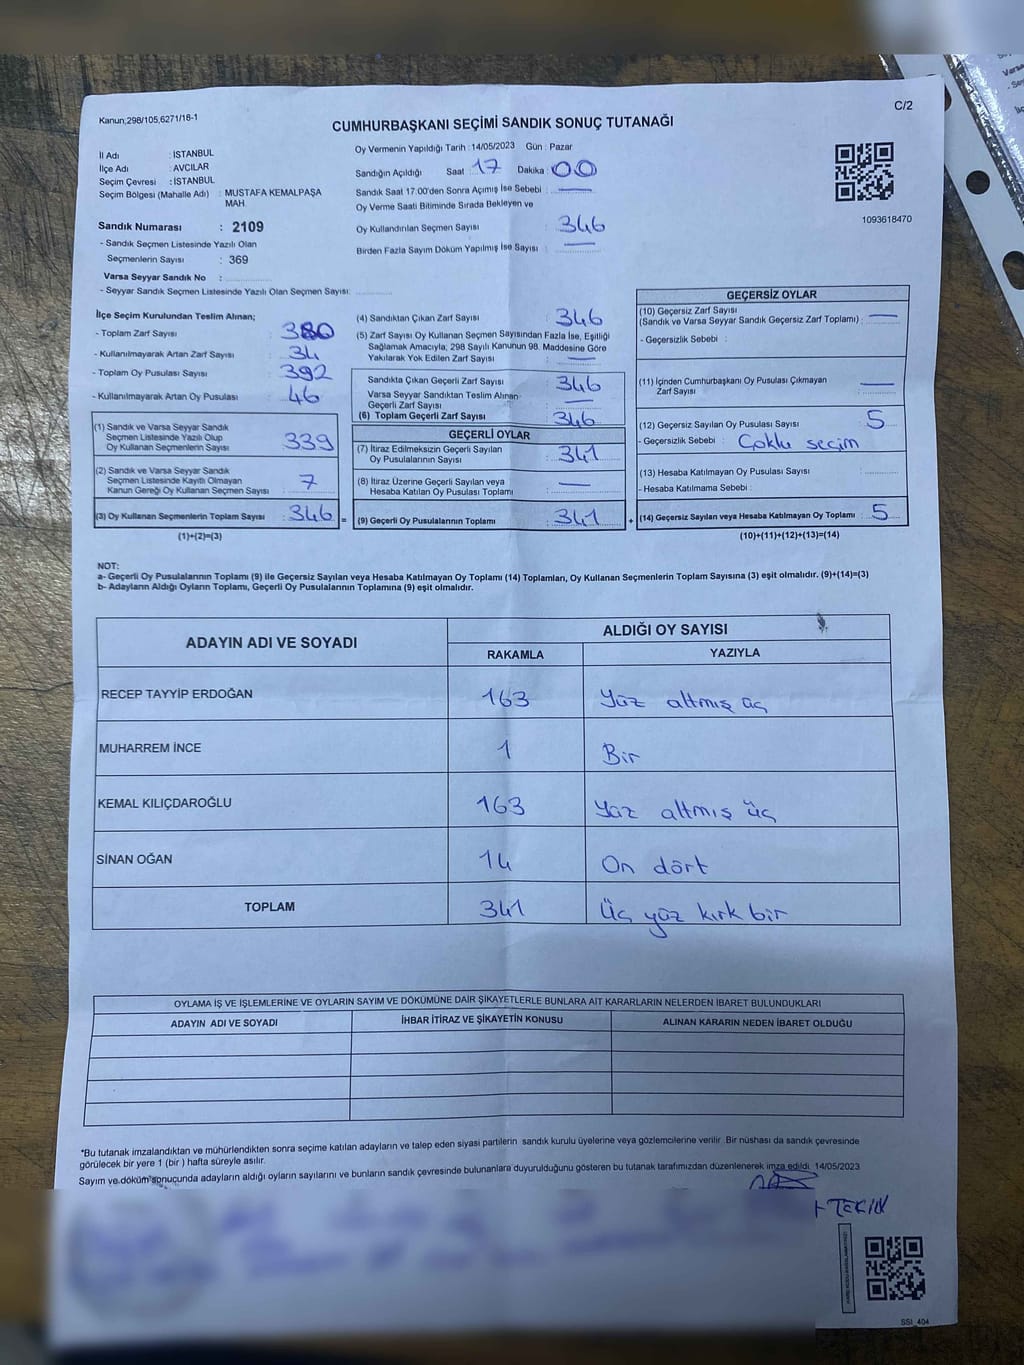 Kanun,298/105,6271/18-1
C/2
CUMHURBAŞKANI SEÇİMİ SANDIK SONUÇ TUTANAĞI
İl Adı : İSTANBUL
İlçe Adı : AVCILAR
Seçim Çevresi : İSTANBUL
Seçim Bölgesi (Mahalle Adı) : MUSTAFA KEMALPAŞA
MAH.
Sandık Numarası : 2109
- Sandık Seçmen Listesinde Yazılı Olan
Seçmenlerin Sayısı : 369
Varsa Seyyar Sandık No :
- Seyyar Sandık Seçmen Listesinde Yazılı Olan Seçmen Sayısı:
Oy Vermenin Yapıldığı Tarih : 14/05/2023 Gün : Pazar
Sandığın Açıldığı Saat : 17 Dakika : 00
Sandık Saat 17:00'den Sonra Açımış İse Sebebi :
Oy Verme Saati Bitiminde Sırada Bekleyen ve
Oy Kullandırılan Seçmen Sayısı : 346
Birden Fazla Sayım Döküm Yapılmış İse Sayısı :
1093618470
İlçe Seçim Kurulundan Teslim Alınan;
- Toplam Zarf Sayısı : 380
- Kullanılmayarak Artan Zarf Sayısı : 34
- Toplam Oy Pusulası Sayısı : 392
- Kullanılmayarak Artan Oy Pusulası : 46
(1) Sandık ve Varsa Seyyar Sandık
Seçmen Listesinde Yazılı Olup
Oy Kullanan Seçmenlerin Sayısı : 339
(2) Sandık ve Varsa Seyyar Sandık
Seçmen Listesinde Kayıtlı Olmayan
Kanun Gereği Oy Kullanan Seçmen Sayısı : 7
(3) Oy Kullanan Seçmenlerin Toplam Sayısı : 346 =
(1)+(2)=(3)
(4) Sandıktan Çıkan Zarf Sayısı : 346
(5) Zarf Sayısı Oy Kullanan Seçmen Sayısından Fazla İse, Eşitliği
Sağlamak Amacıyla, 298 Sayılı Kanunun 98. Maddesine Göre
Yakılarak Yok Edilen Zarf Sayısı :
Sandıkta Çıkan Geçerli Zarf Sayısı : 346
Varsa Seyyar Sandıktan Teslim Alınan
Geçerli Zarf Sayısı :
(6) Toplam Geçerli Zarf Sayısı : 346
GEÇERLİ OYLAR
(7) İtiraz Edilmeksizin Geçerli Sayılan
Oy Pusulalarının Sayısı : 341
(8) İtiraz Üzerine Geçerli Sayılan veya
Hesaba Katılan Oy Pusulası Toplamı :
(9) Geçerli Oy Pusulalarının Toplamı : 341 +
GEÇERSİZ OYLAR
(10) Geçersiz Zarf Sayısı
(Sandık ve Varsa Seyyar Sandık Geçersiz Zarf Toplamı) :
- Geçersizlik Sebebi :
(11) İçinden Cumhurbaşkanı Oy Pusulası Çıkmayan
Zarf Sayısı :
(12) Geçersiz Sayılan Oy Pusulası Sayısı : 5
- Geçersizlik Sebebi : Çoklu seçim
(13) Hesaba Katılmayan Oy Pusulası Sayısı :
- Hesaba Katılmama Sebebi :
(14) Geçersiz Sayılan veya Hesaba Katılmayan Oy Toplamı : 5
(10)+(11)+(12)+(13)=(14)
NOT:
a- Geçerli Oy Pusulalarının Toplamı (9) ile Geçersiz Sayılan veya Hesaba Katılmayan Oy Toplamı (14) Toplamları, Oy Kullanan Seçmenlerin Toplam Sayısına (3) eşit olmalıdır. (9)+(14)=(3)
b- Adayların Aldığı Oyların Toplamı, Geçerli Oy Pusulalarının Toplamına (9) eşit olmalıdır.
ADAYIN ADI VE SOYADI ALDIĞI OY SAYISI
RAKAMLA YAZIYLA
RECEP TAYYİP ERDOĞAN 163 Yüz altmış üç
MUHARREM İNCE 1 Bir
KEMAL KILIÇDAROĞLU 163 Yüz altmış üç
SİNAN OĞAN 14 On dört
TOPLAM 341 Üç yüz kırk bir
OYLAMA İŞ VE İŞLEMLERİNE VE OYLARIN SAYIM VE DÖKÜMÜNE DAİR ŞİKAYETLERLE BUNLARA AİT KARARLARIN NELERDEN İBARET BULUNDUKLARI
ADAYIN ADI VE SOYADI İHBAR İTİRAZ VE ŞİKAYETİN KONUSU ALINAN KARARIN NEDEN İBARET OLDUĞU
*Bu tutanak imzalandıktan ve mühürlendikten sonra seçime katılan adayların ve talep eden siyasi partilerin sandık kurulu üyelerine veya gözlemcilerine verilir. Bir nüshası da sandık çevresinde
görülecek bir yere 1 (bir ) hafta süreyle asılır.
Sayım ve döküm sonucunda adayların aldığı oyların sayılarını ve bunların sandık çevresinde bulunanlara duyurulduğunu gösteren bu tutanak tarafımızdan düzenlenerek imza edildi. 14/05/2023
TEKİN
SSI_404